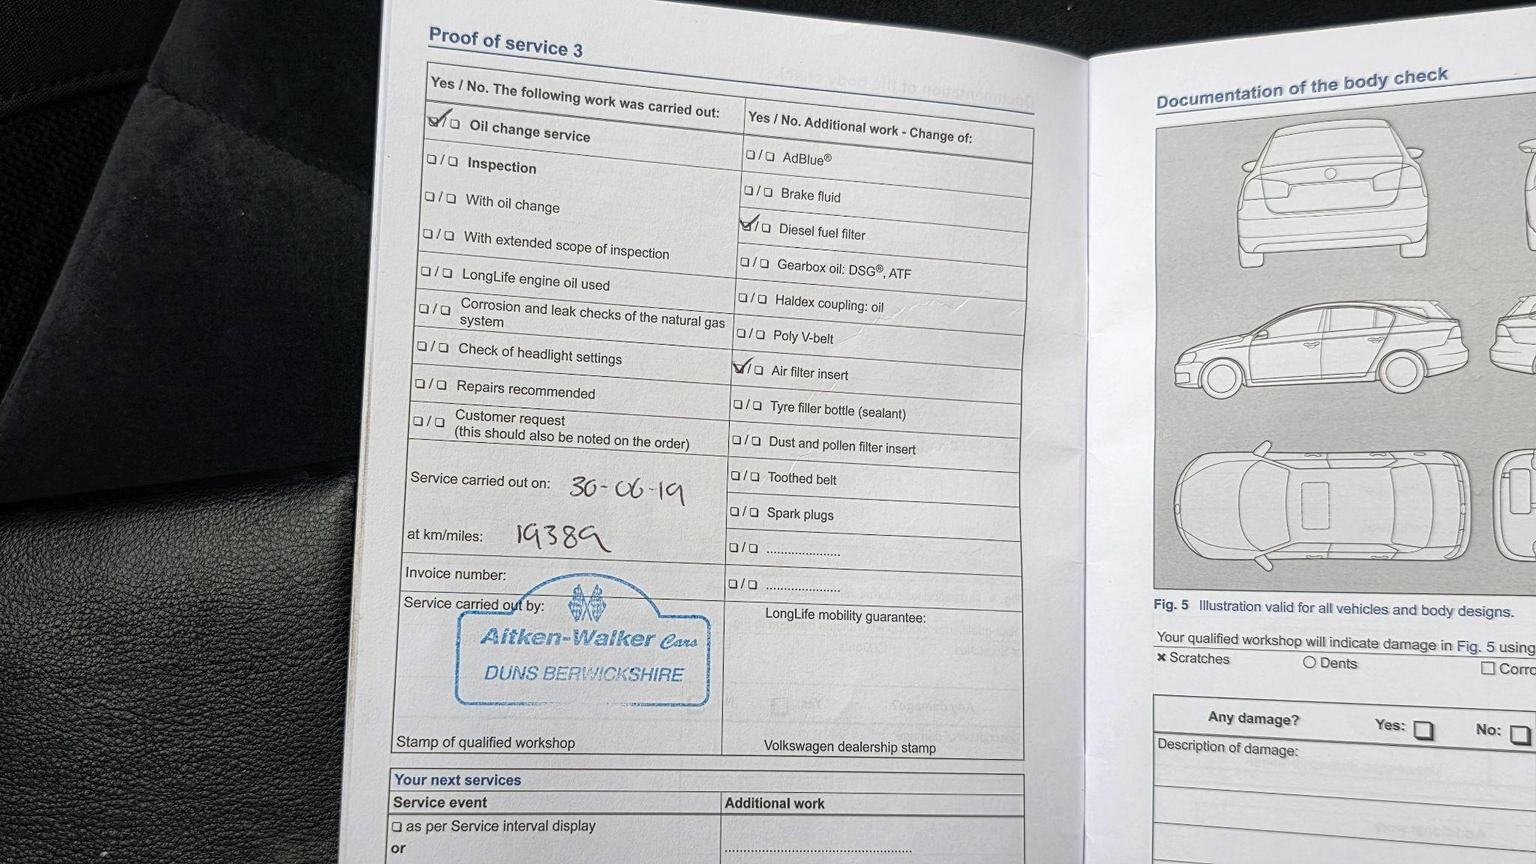 Proof of service 3
Yes / No. The following work was carried out:
☑/❏ Oil change service
❏/❏ Inspection
❏/❏ With oil change
❏/❏ With extended scope of inspection
❏/❏ LongLife engine oil used
❏/❏ Corrosion and leak checks of the natural gas
system
❏/❏ Check of headlight settings
❏/❏ Repairs recommended
❏/❏ Customer request
(this should also be noted on the order)
Service carried out on: 30-06-19
at km/miles: 19389
Invoice number:
Service carried out by:
Aitken-Walker Cars
DUNS BERWICKSHIRE
Stamp of qualified workshop
Yes / No. Additional work - Change of:
❏/❏ AdBlue®
❏/❏ Brake fluid
☑/❏ Diesel fuel filter
❏/❏ Gearbox oil: DSG®, ATF
❏/❏ Haldex coupling: oil
❏/❏ Poly V-belt
☑/❏ Air filter insert
❏/❏ Tyre filler bottle (sealant)
❏/❏ Dust and pollen filter insert
❏/❏ Toothed belt
❏/❏ Spark plugs
❏/❏ .....................
❏/❏ .....................
LongLife mobility guarantee:
Volkswagen dealership stamp
Your next services
Service event
Additional work
❏ as per Service interval display
or
Documentation of the body check
Fig. 5 Illustration valid for all vehicles and body designs.
Your qualified workshop will indicate damage in Fig. 5 using
× Scratches
○ Dents
Any damage?
Yes: ❏
No: ❏
Description of damage: